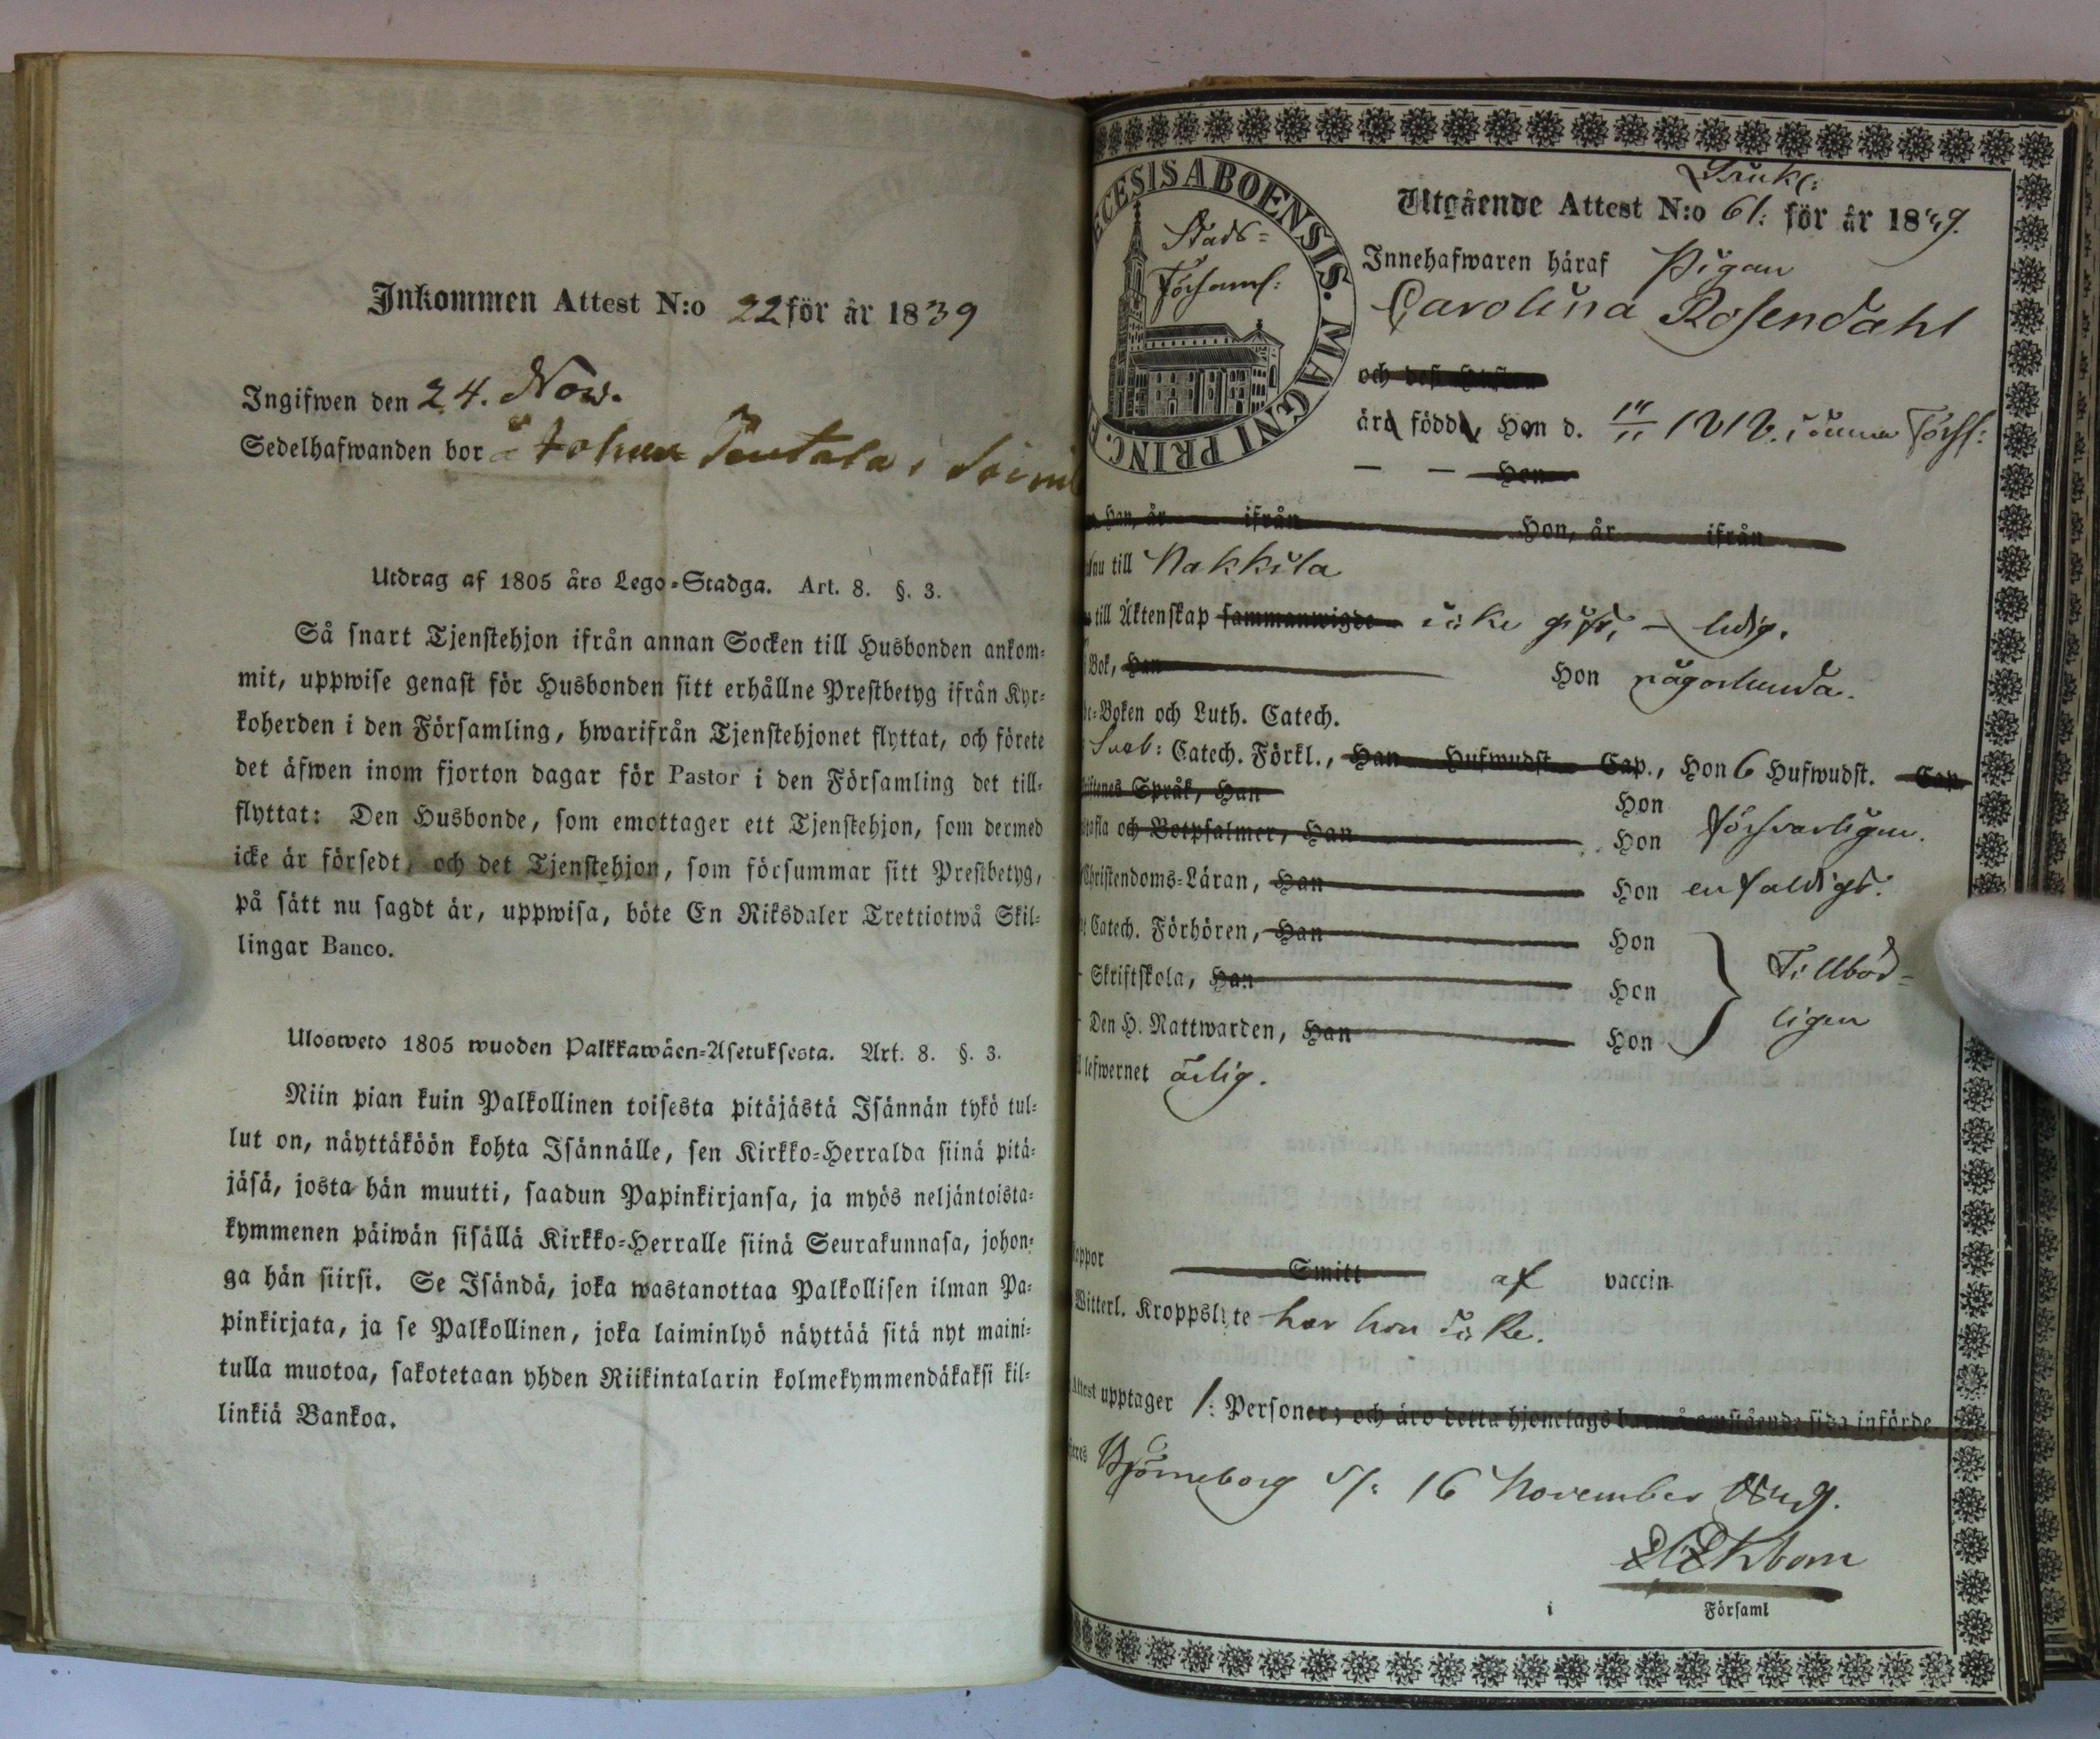 Inkommen Attest N:o 22 för år 1839
Ingifwen den 24. Nov.
Sedelhafwanden bor å Johan
Utdrag af 1805 års Lego-Stadga. Art. 8. §. 3.
Så snart Tjenstehjon ifrån annan Socken till Husbonden ankom-
mit, uppwise genast för Husbonden sitt erhållne Prestbetyg ifrån Kyr-
koherden i den Församling, hwarifrån Tjenstehjonet flyttat, och förete
det äfwen inom fjorton dagar för Pastor i den Församling det till-
flyttat: Den Husbonde, som emottager ett Tjenstehjon, som dermed
icke är försedt, och det Tjenstehjon, som försummar sitt Prestbetyg,
på sätt nu sagdt är, uppwisa, böte En Riksdaler Trettiotwå Skil-
lingar Banco.
Ulosweto 1805 wuoden Palkkawäen-Asetuksesta. Art. 8. §. 3.
Niin pian kuin Palkollinen toisesta pitäjästä Isännän tykö tul-
lut on, näyttäköön kohta Isännälle, sen Kirkko-Herralda siinä pitä-
jäsä, josta hän muutti, saadun Papinkirjansa, ja myös neljäntoista-
kymmenen päiwän sisällä Kirkko-Herralle siinä Seurakunnasa, johon-
ga hän siirsi. Se Isändä, joka wastanottaa Palkollisen ilman Pa-
pinkirjata, ja se Palkollinen, joka laiminlyö näyttää sitä nyt maini-
tulla muotoa, sakotetaan yhden Riikintalarin kolmekymmendäkaksi kil-
linkiä Bankoa.
ECESIS ABOENSIS. MAGNI PRINC. F
Stads-
Församl:
Utgående Attest N:o 61: för år 1839.
Innehafwaren häraf Pigan
Carolina Rosendahl
och
är född, Hon d. i denna Förs:
Hon
Han, år ifrån Hon, år ifrån
nu till Nakkila
till Äktenskap sammanwigde icke gift, – ledig.
Bok, Han Hon någorlunda.
-Boken och Luth. Catech.
Sveb: Catech. Förkl., Han Hufwudst. Cap., Hon 6 Hufwudst. Cap
Språk, Han Hon
och Botpsalmer, Han Hon försvarligen.
Christendoms-Läran, Han Hon enfaldigt.
Catech. Förhören, Han Hon
Skriftskola, Han Hon Tillbör-
Den H. Nattwarden, Han Hon ligen
lefwernet ärlig.
koppor Smitt af vaccin
Witterl. Kroppslyte har hon icke.
Attest upptager 1: Personer; och äro detta hjonelags barn å omstående sida införde.
Björneborg d. 16 November 1839.
Församl
i